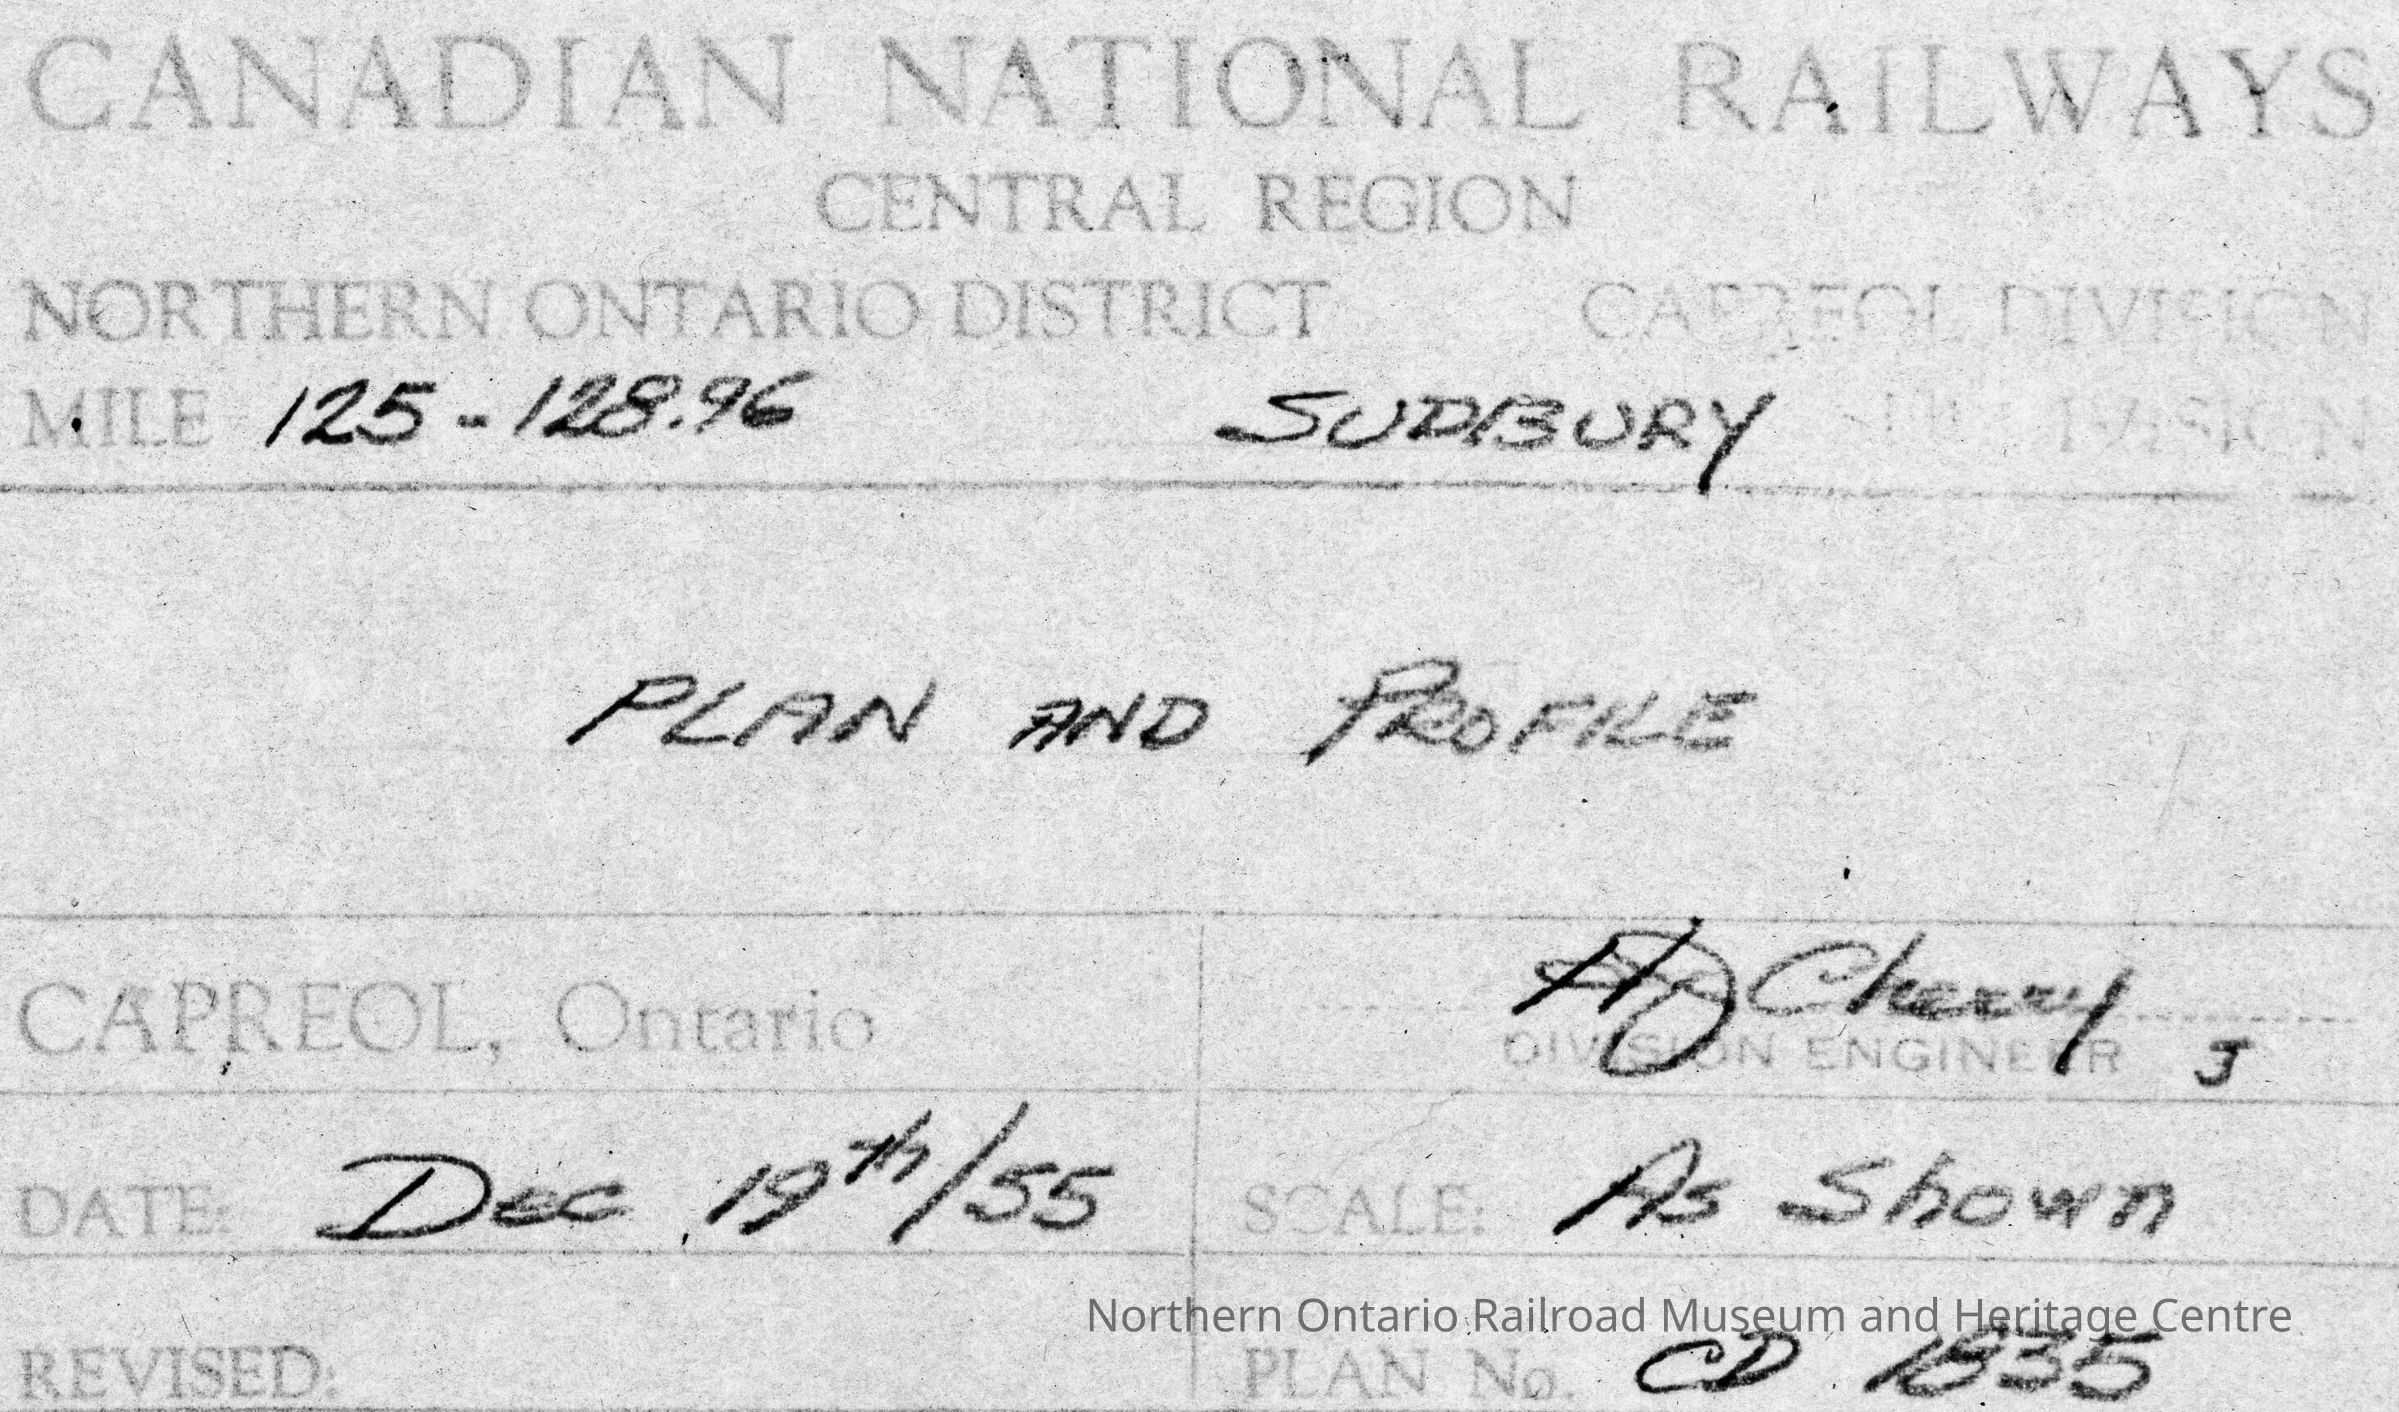 CANADIAN NATIONAL RAILWAYS
CENTRAL REGION
NORTHERN ONTARIO DISTRICT CAPREOL DIVISION
MILE 125-128.96 SUDBURY
PLAN AND PROFILE
CAPREOL, Ontario
Cherry
DIVISION ENGINEER J
DATE: Dec 19th/55 SCALE: As Shown
Northern Ontario Railroad Museum and Heritage Centre
REVISED: PLAN No. CD 1835